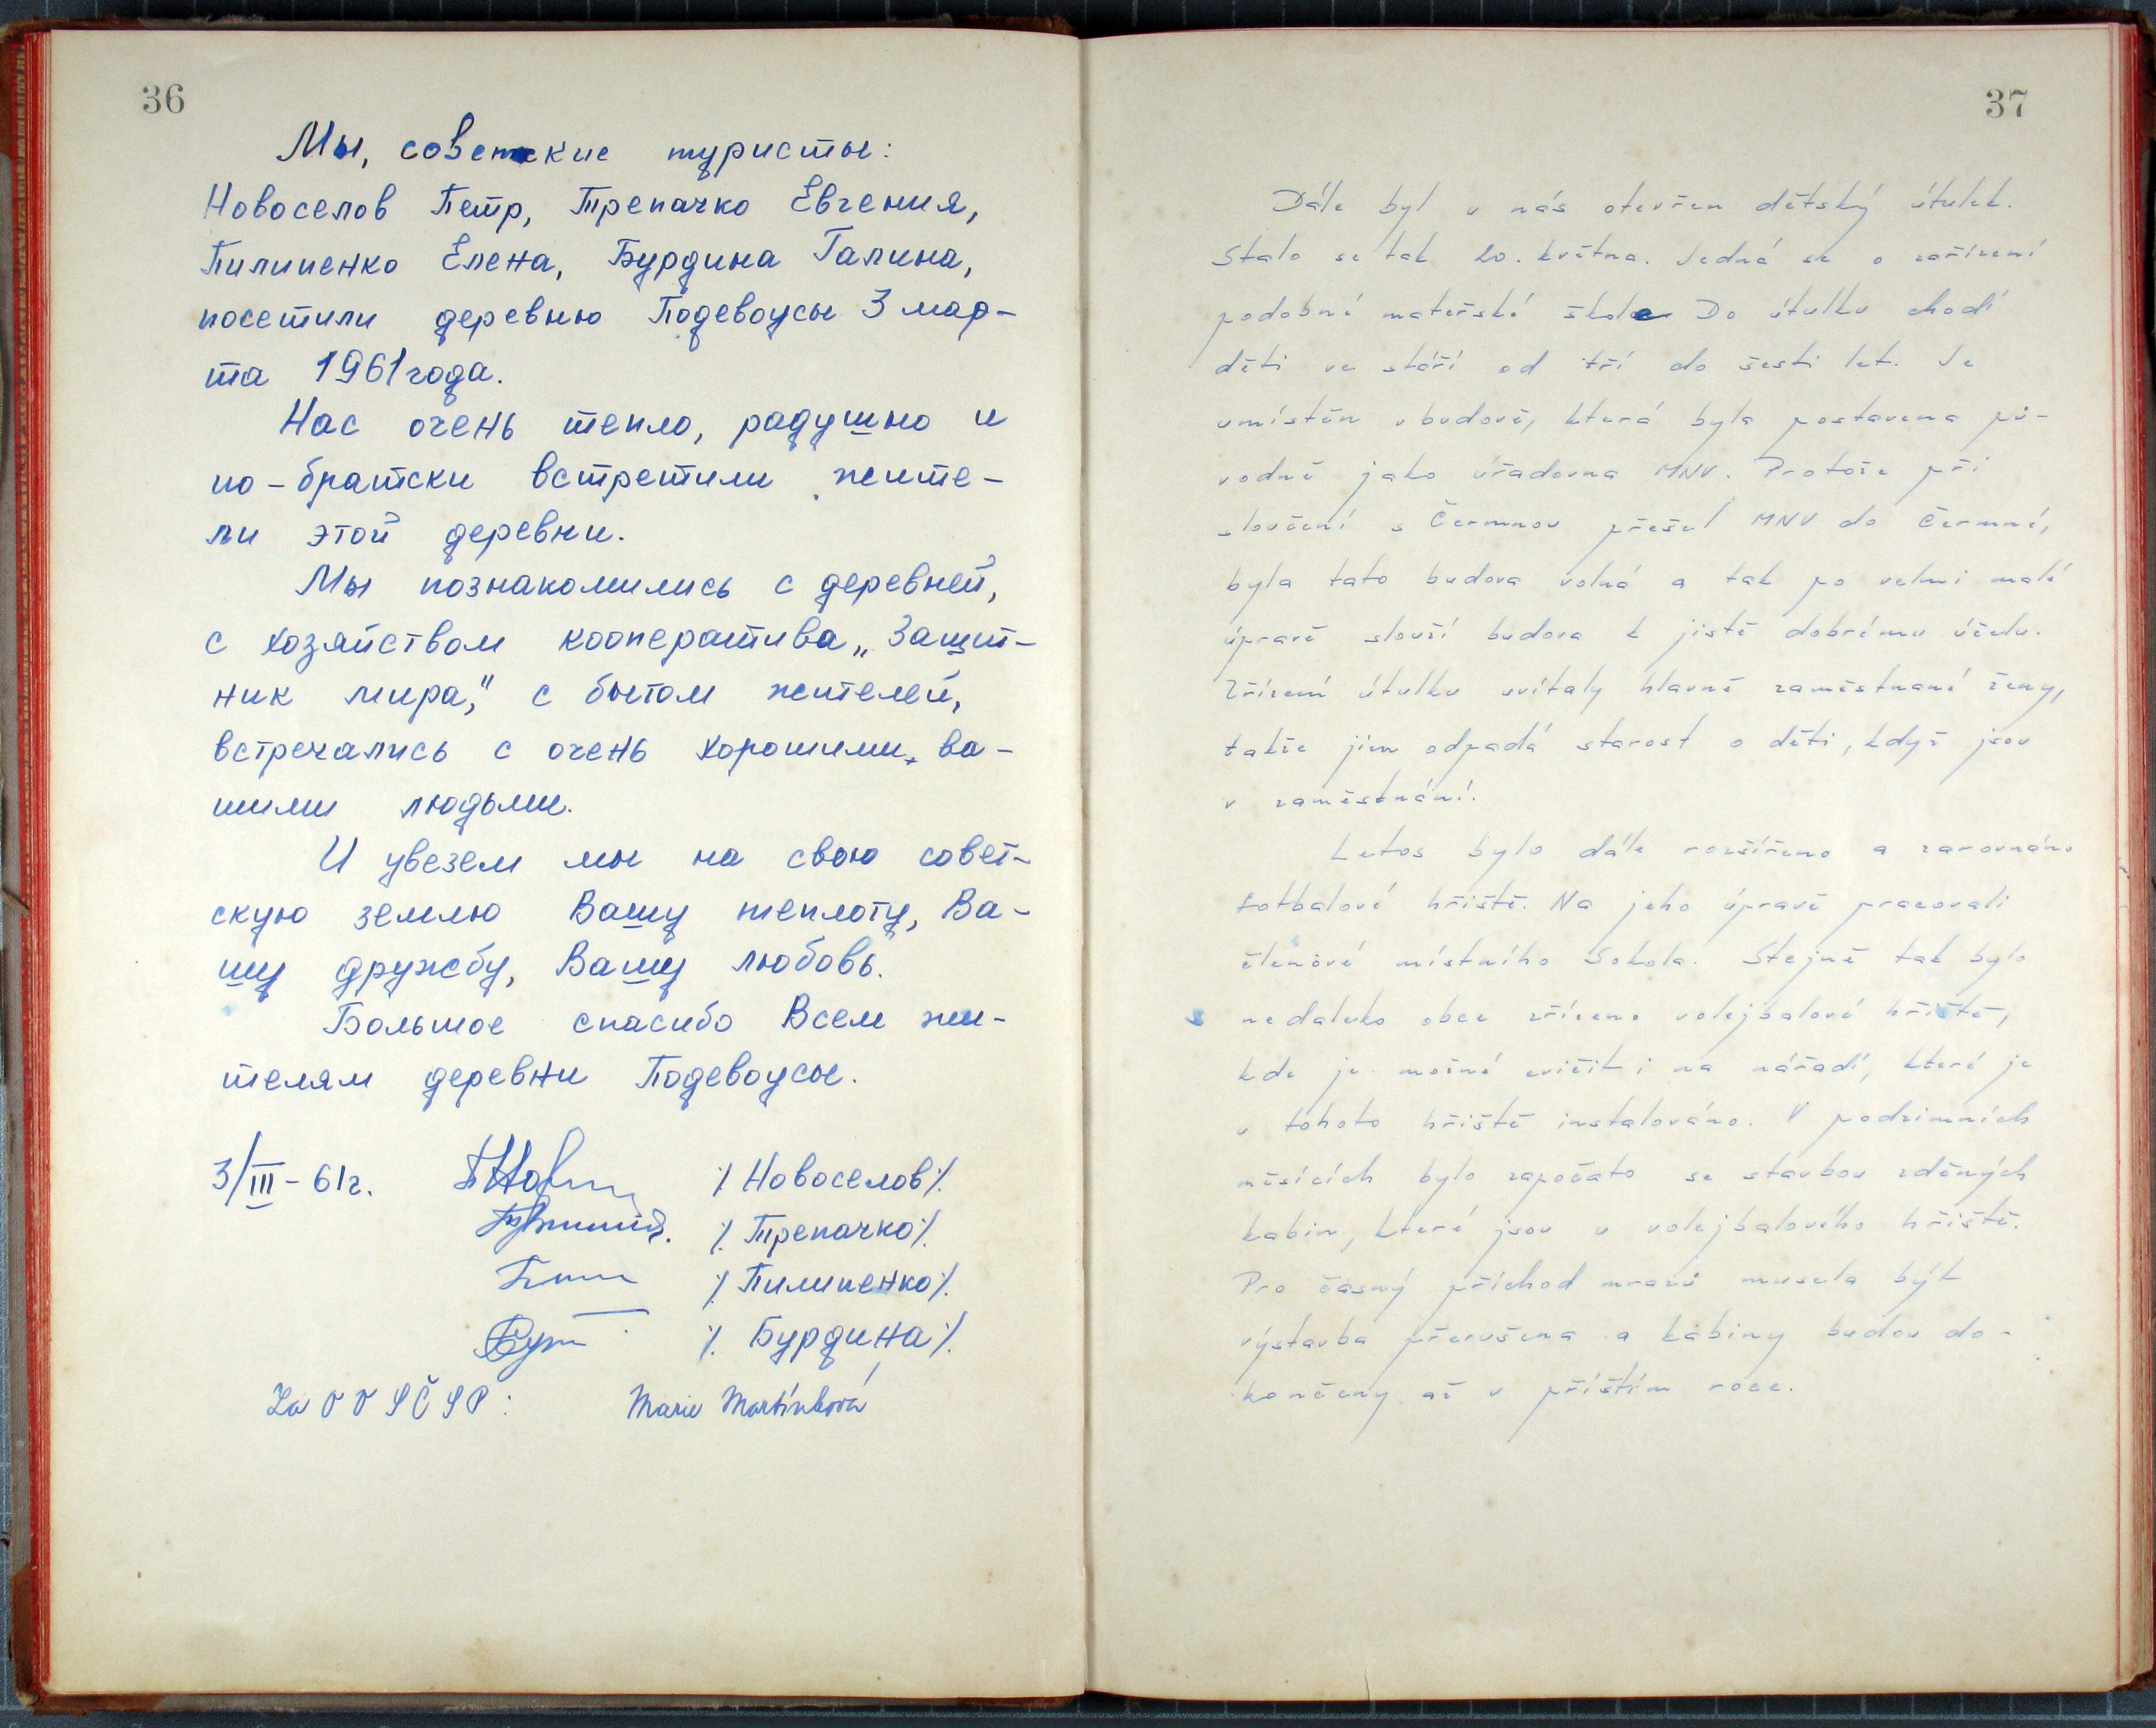 36
Мы, советские туристы:
Новоселов Петр, Трепачко Евгения,
Пилипенко Елена, Бурдина Галина,
посетили деревню Подевоусы 3 мар-
та 1961 года.
Нас очень тепло, радушно и
по-братски встретили жите-
ли этой деревни.
Мы познакомились с деревней,
с хозяйством кооператива „Защит-
ник мира,“ с бытом жителей,
встречались с очень хорошими, ва-
шими людьми.
И увезем мы на свою совет-
скую землю Вашу теплоту, Ва-
шу дружбу, Вашу любовь.
Большое спасибо Всем жи-
телям деревни Подевоусы.
3/III-61г. /Новоселов/.
/Трепачко/.
/Пилипенко/.
/Бурдина/.
Za OV SČSP: Marie Martínková
37
Dále byl u nás otevřen dětský útulek.
Stalo se tak 20. května. Jedná se o zařízení
podobné mateřské škole Do útulku chodí
děti ve stáří od tří do šesti let. Je
umístěn v budově, která byla postavena pů-
vodně jako úřadovna MNV. Protože při
sloučení s Čermnou přešel MNV do Čermné,
byla tato budova volná a tak po velmi malé
úpravě slouží budova k jistě dobrému účelu.
Zřízení útulku uvítaly hlavně zaměstnané ženy,
takže jim odpadá starost o děti, když jsou
v zaměstnání.
Letos bylo dále rozšířeno a zarovnáno
fotbalové hřiště. Na jeho úpravě pracovali
členové místního Sokola. Stejně tak bylo
nedaleko obce zřízeno volejbalové hřiště,
kde je možné cvičit i na nářadí, které je
u tohoto hřiště instalováno. V podzimních
měsících bylo započato se stavbou zděných
kabin, které jsou u volejbalového hřiště.
Pro časný příchod mrazů musela být
výstavba přerušena a kabiny budou do-
končeny až v příštím roce.